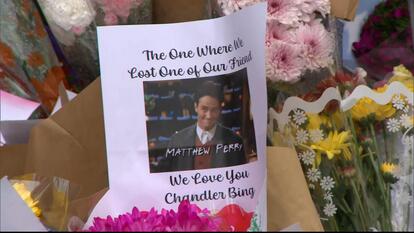 The One Where We
Lost One of Our Friend
MATTHEW PERRY
We Love You
Chandler Bing